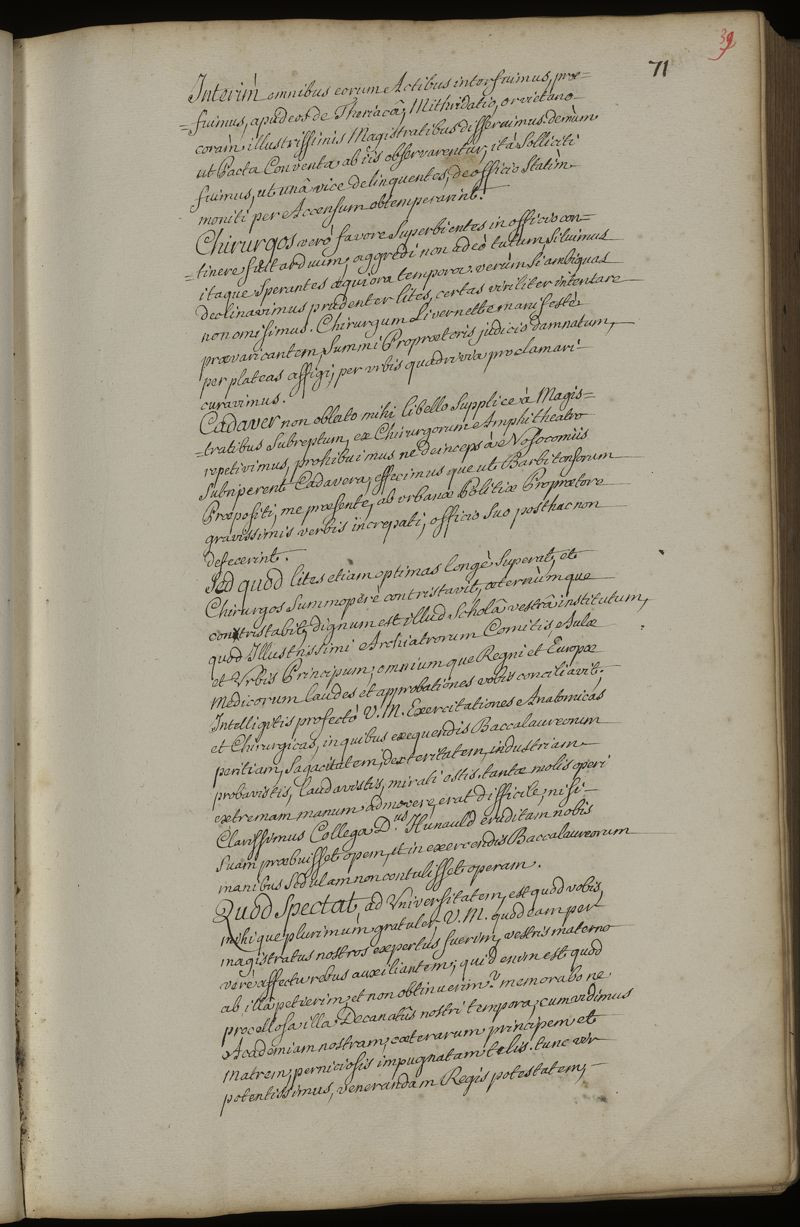 39
71
Interim omnibus eorum Actibus interfuimus, præ=
=fuimus, apud eos de Theriacâ, Mithridatio, orvietano
coram illustrissimis Magistratibus disseruimus demùm
ut Pacta Conventa ab iis observarentur; ità solliciti
fuimus, ut unâ vice delinquentes, de officio statim
moniti per Accensum obtemperarint.
Chirurgos verò favore superbientes in officio con=
=tinere fuit arduum; aggredi non adeò tutum, siluimus
itaque sperantes æquiora tempora. verùm si ambiguas
declinavimus prudenter lites, certas viriliter intentare
non omisimus. Chirurgum Livernette manifestè
prævaricantem, summi Proprætoris judicis damnatum,
per plateas affigi, per urbis quadrivia proclamari
curavimus.
Cadaver non oblato mihi libello supplice à Magis=
=tratibus subreptum, ex Chirurgorum Amphitheatro
repetivimus, prohibuimus ne deinceps à Nosocomiis
subriperent Cadavera, effecimus que ut Barbitonsorum
Præpositi, me præsente, ab urbanæ Politiæ Proprætore
gravissimis verbis increpati, officio suo posthac non
defecerint.
Sed quod lites etiam optimas longè superat, et
Chirurgos summopere contristavit, æternùmque
contristabit, dignum est illud scholâ vestrâ institutum,
quod Illustrissimi Archiatrorum Comitis Aulæ
et Urbis Principum, omnium que Regni et Europæ
Medicorum laudes et approbationes vobis conciliavit.
Intelligitis profectò V. M. Exercitationes Anatomicas
et Chirurgicas, in quibus exequendis Baccalaureorum
peritiam, sagacitatem, dexteritatem, industriam
probavistis, laudavistis, mirati estis. tantæ molis operi
extremam manum admovere, erat difficile, nisi
Clarissimus Collega D.us Hunauld eruditam nobis
suam præbuisset opem, et in exercendis Baccalaureorum
manibus sedulam non contulisset operam.
Quod spectat, ad Universitatem, est quod vobis,
mihique plurimùm gratuler V. M. quod eam per
magistratus nostros expertus fuerim, vestris materno
verè affectu rebus auxiliantem; quid enim est quod
ab illâ petierim, et non obtinuerim? memorabo ne
procellosa illa Decanatûs nostri tempora; cum vidimus
Academiam nostram, cæterarum principem et
matrem, perniciosis impugnatam telis. tunc vir
potentissimus, venerandam Regis potestatem,